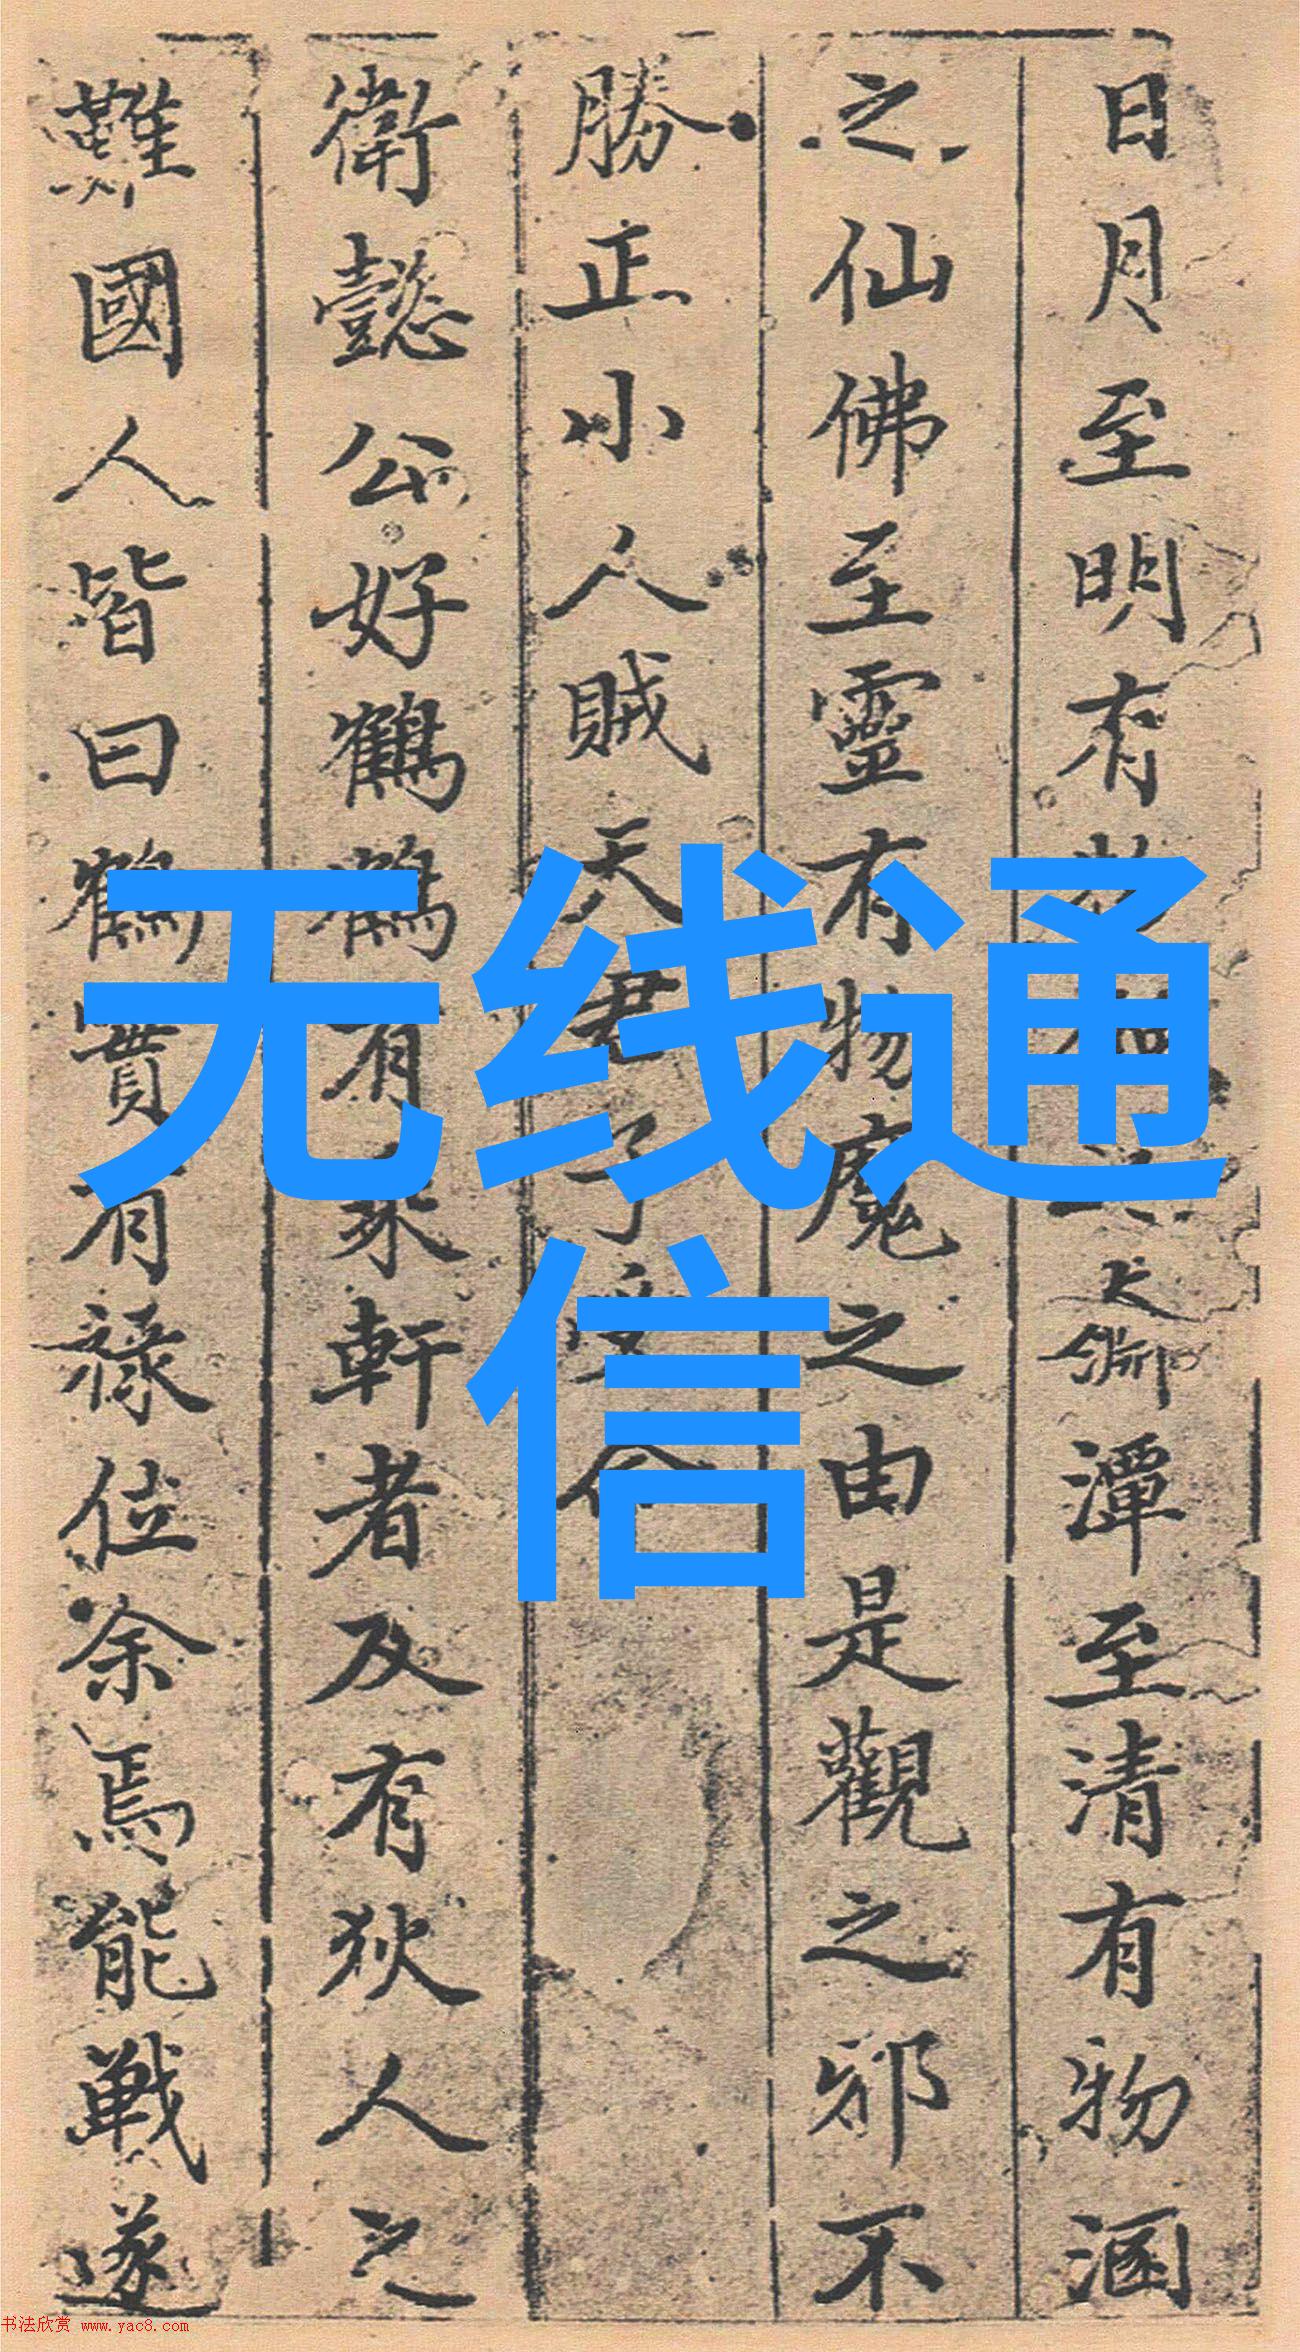 日月至明有
大鈵潭至清有物涵
之仙佛至靈有物魔之由是觀之邪不
勝正小人賊天君子
衛懿公好鶴鶴有乘軒者及有狄人之
難國人皆曰鶴實有祿位余焉能戰遂
无线通
信
书法欣赏 www.yac8.com